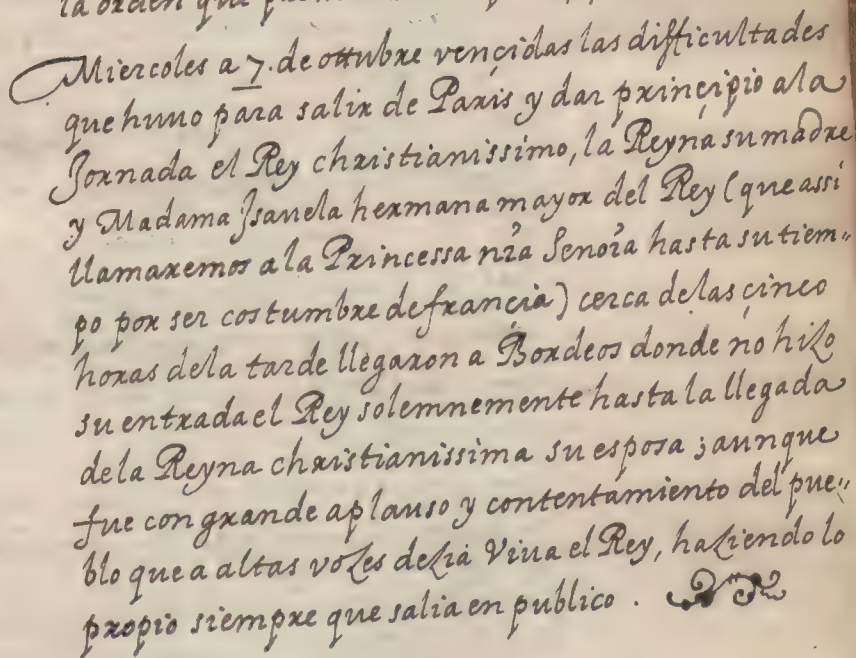 la orden que
Miercoles a 7. de ottubre vençidas las difficultades
que huuo para salir de Paris y dar prinçipio a la
Jornada el Rey christianissimo, la Reyna su madre
y Madama Jsauela hermana mayor del Rey (que assi
llamaremos a la Princessa nr̃a Señora hasta su tiem-
po por ser costumbre de françia) cerca de las çinco
horas dela tarde llegaron a Bordeos donde no hizo
su entrada el Rey solemnemente hasta la llegada
dela Reyna christianissima su esposa; aunque
fue con grande aplauso y contentamiento del pue-
blo que a altas vozes dezia Viua el Rey, haziendo lo
propio siempre que salia en publico.